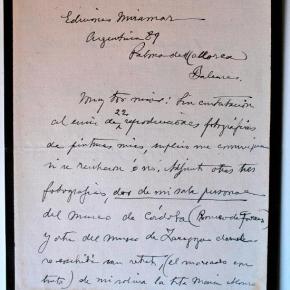 Ediciones Miramar
Argentina 89
Palma de Mallorca
Baleares.
Muy Sres mios: Sin contestación
al envio de 22 reproducciones fotográficas
de pinturas mias, suplico me comuniquen
si se recibieron ó no. Adjunto otras tres
fotografías, dos de mi sala personal
del Museo de Córdoba (Romero de Torres)
y otra del museo de Zaragoza donde
un retrato (el marcado con
tinta) de mi